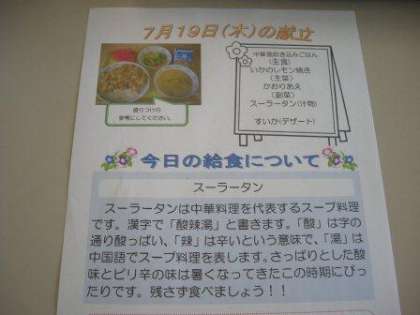 7月19日(木)の献立
中華風炊き込みごはん
(主食)
いかのレモン焼き
(主菜)
かおりあえ
(副菜)
スーラータン(汁物)
すいか(デザート)
盛りつけの
参考にしてください。
今日の給食について
スーラータン
スーラータンは中華料理を代表するスープ料理
です。漢字で「酸辣湯」と書きます。「酸」は字の
通り酸っぱい、「辣」は辛いという意味で、「湯」は
中国語でスープ料理を表します。さっぱりとした酸
味とピリ辛の味は暑くなってきたこの時期にぴっ
たりです。残さず食べましょう！！